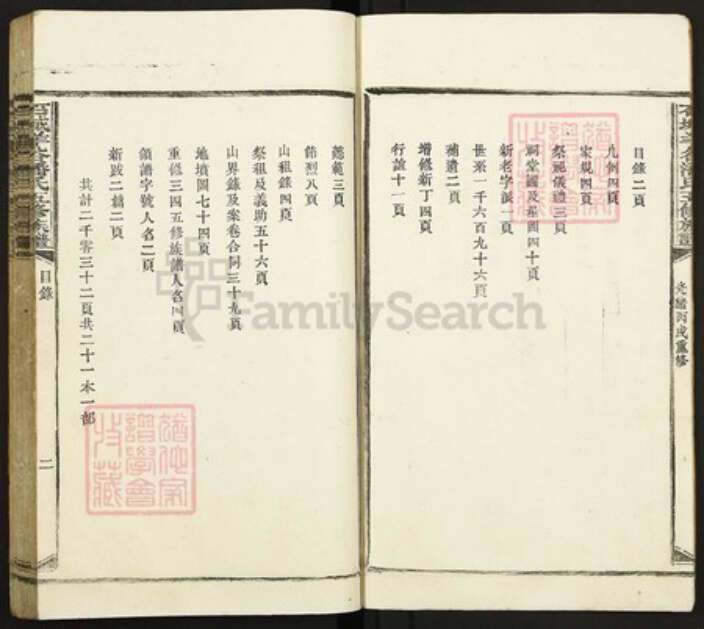 目錄二頁
凡例四頁
家規四頁
祭祀儀禮三頁
祠堂圖及基圖四十頁
新老字派一頁
世系一千六百九十六頁
補遺二頁
增修新丁四頁
行誼十一頁
光緒丙戌重修
懿範三頁
節烈八頁
山租錄四頁
祭租及義助五十六頁
山界錄及案卷合同三十九頁
地墳圖七十四頁
重修三四五修族譜人名四頁
領譜字號人名二頁
新跋二篇二頁
共計二千零三十二頁共二十一本一部
氏五修族譜
目錄
二
FamilySearch